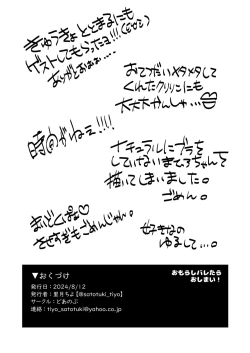 きゅうきょととまるにも
ゲストしてもらったョ!!!
ありがとおぉぉ....
おてつだいメタメタして
くれたクリリンにも
大大大かんしゃ...
時間がねぇ!!!!
ナチュラルにブラを
していないまてろちゃんを
描いてしまいました。
ごめん。
まいどっぴぉ♡
させすぎもごめんじゃん。
好きなの
ゆるして...。
▼おくづけ
発行日:2024/8/12
発行者:里月ちよ【@satotuki_tiyo】
サークル:どあのぶ
連絡:tiyo_satotuki@yahoo.co.jp
おもらしバレたら
おしまい!